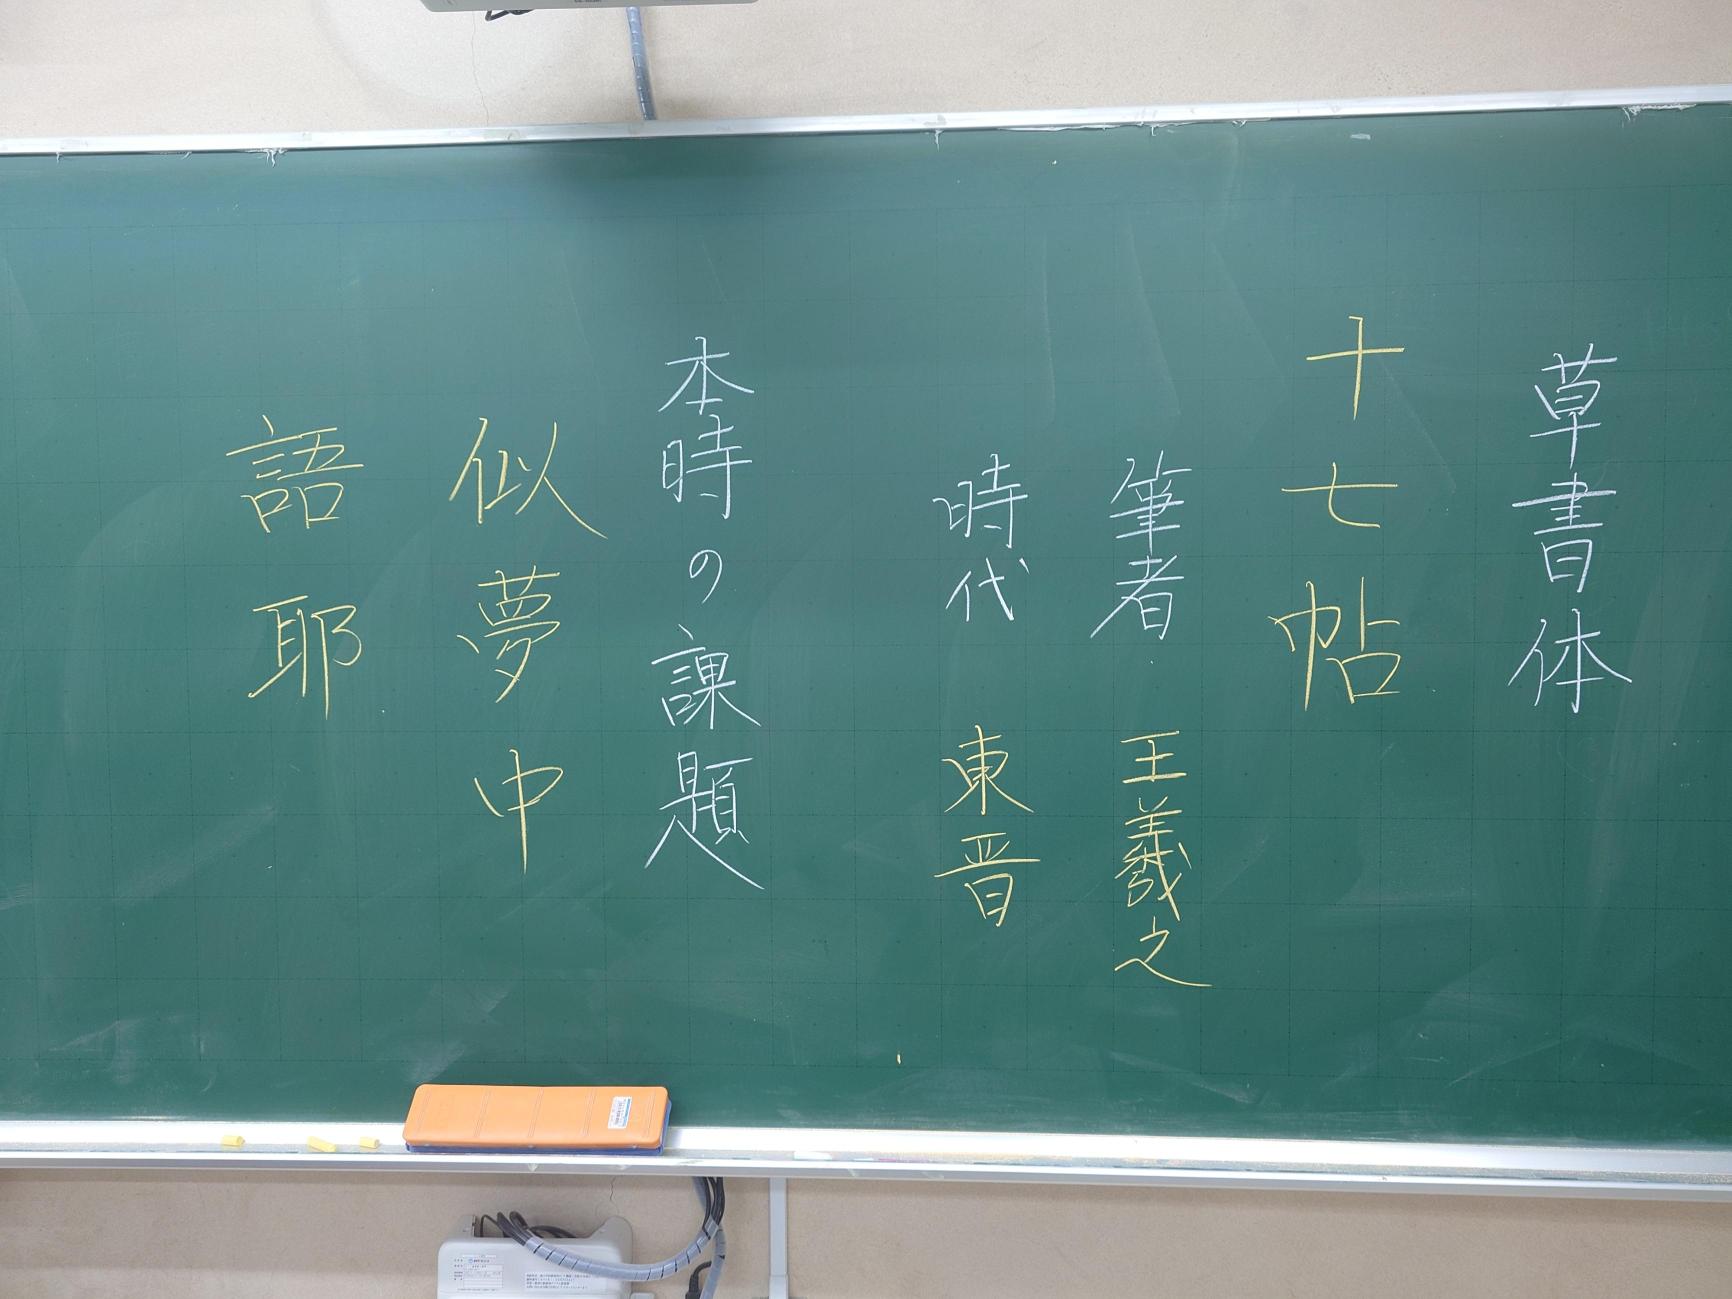 草書体
十七帖
筆者 王羲之
時代 東晋
本時の課題
似夢中
語耶